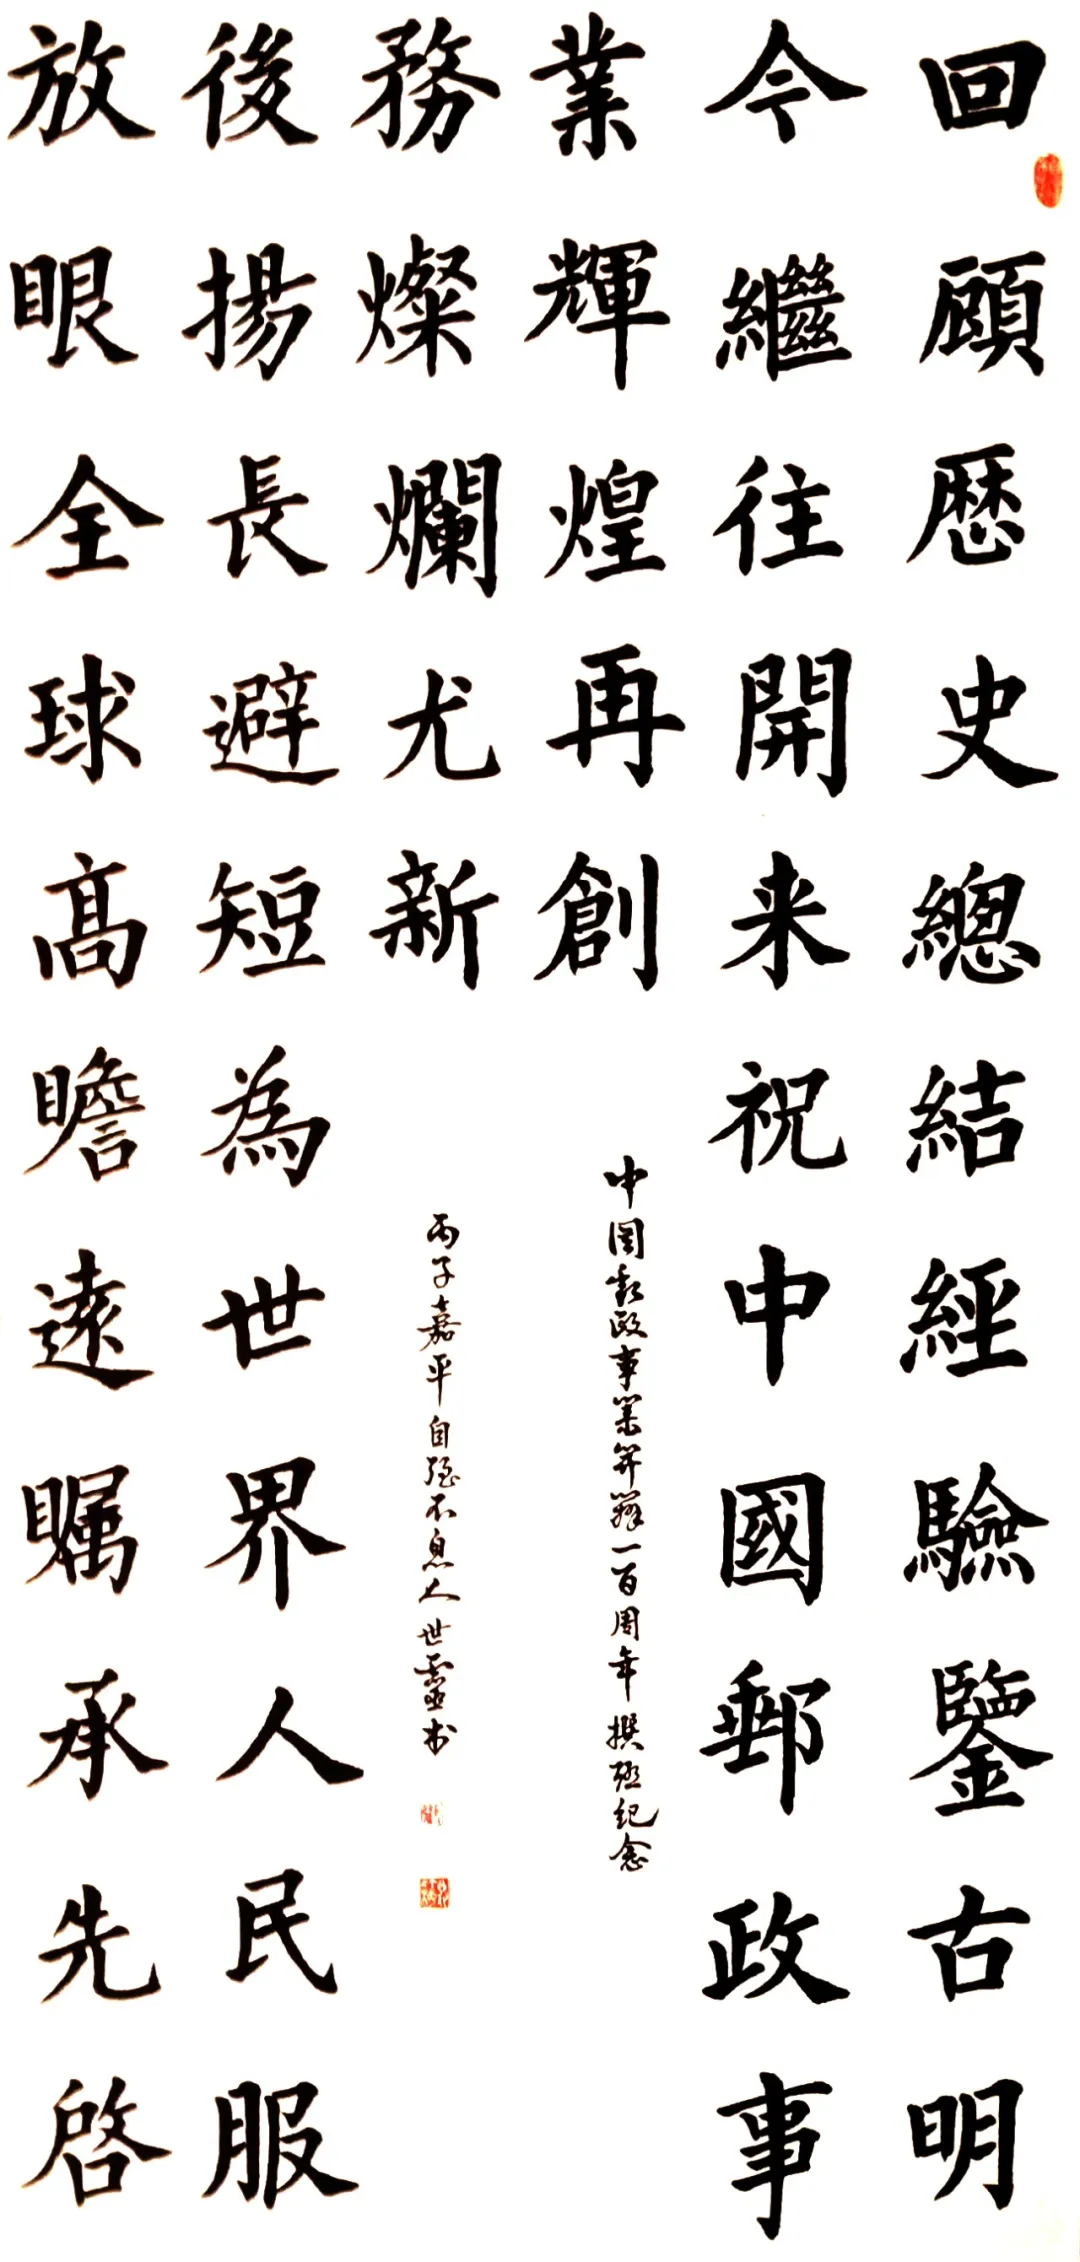 回顧歷史總結經驗鑒古明
今繼往開来祝中國郵政事
業輝煌再創
中国郵政事業開辦一百周年撰聯紀念
放眼全球髙瞻遠瞩承先啓
後揚長避短為世界人民服
務燦爛尤新
丙子嘉平自强不息人世靈书